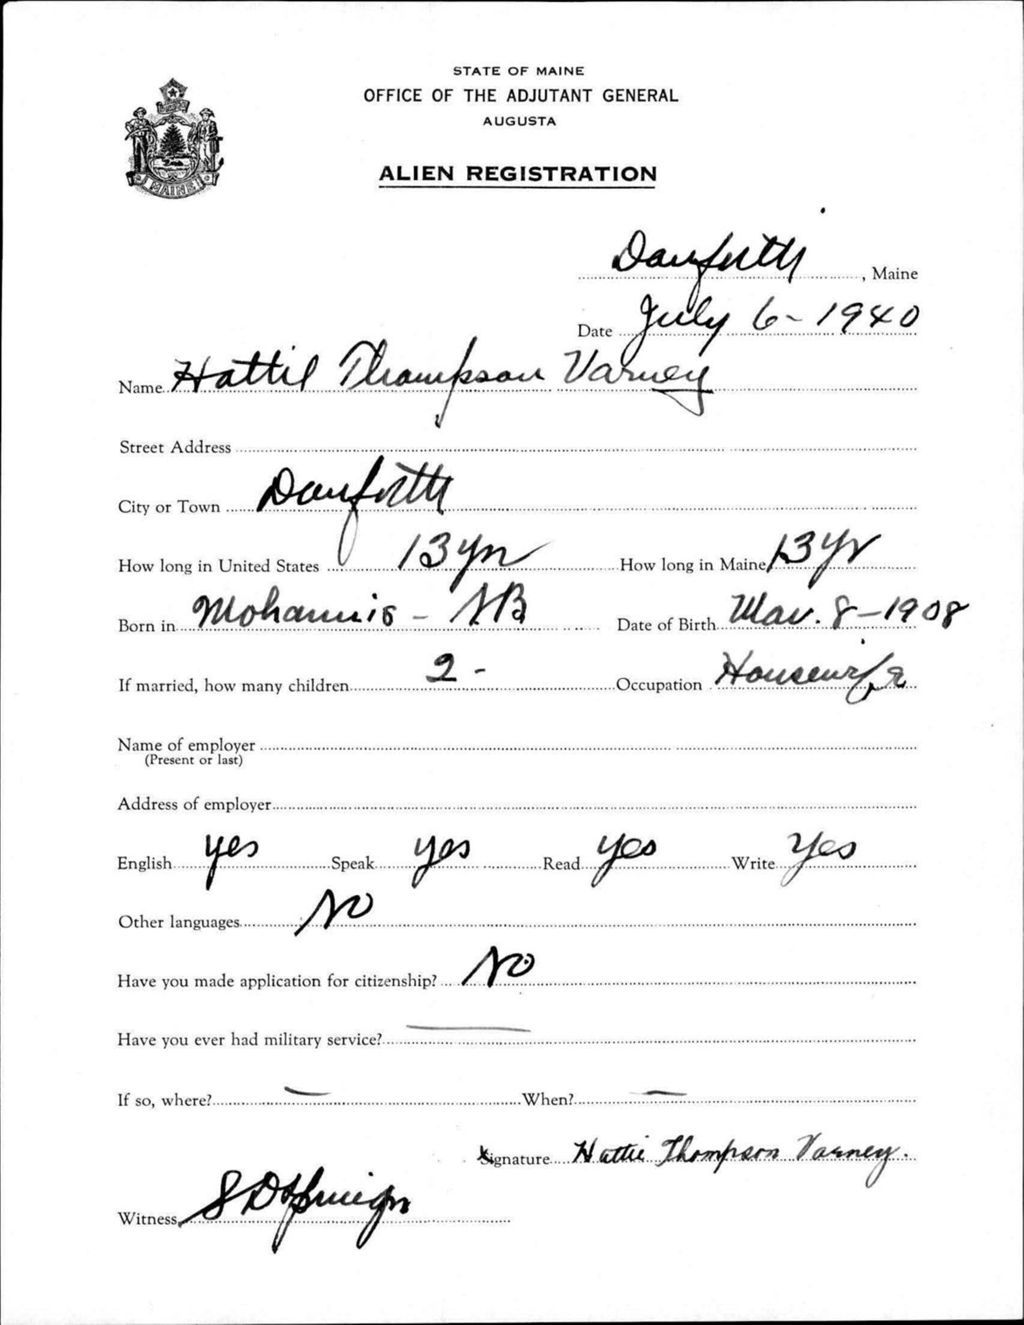 STATE OF MAINE
OFFICE OF THE ADJUTANT GENERAL
AUGUSTA
ALIEN REGISTRATION
Danforth, Maine
Date July 6 - 1940
Name Hattie Thompson Varney
Street Address
City or Town Danforth
How long in United States 13 yr How long in Maine 13 yr
Born in - NB Date of Birth Mar. 8 - 1908
If married, how many children 2 - Occupation Housewife
Name of employer
(Present or last)
Address of employer
English yes Speak yes Read yes Write yes
Other languages No
Have you made application for citizenship? No
Have you ever had military service? —
If so, where? — When? —
Signature Hattie Thompson Varney.
Witness
MAINE